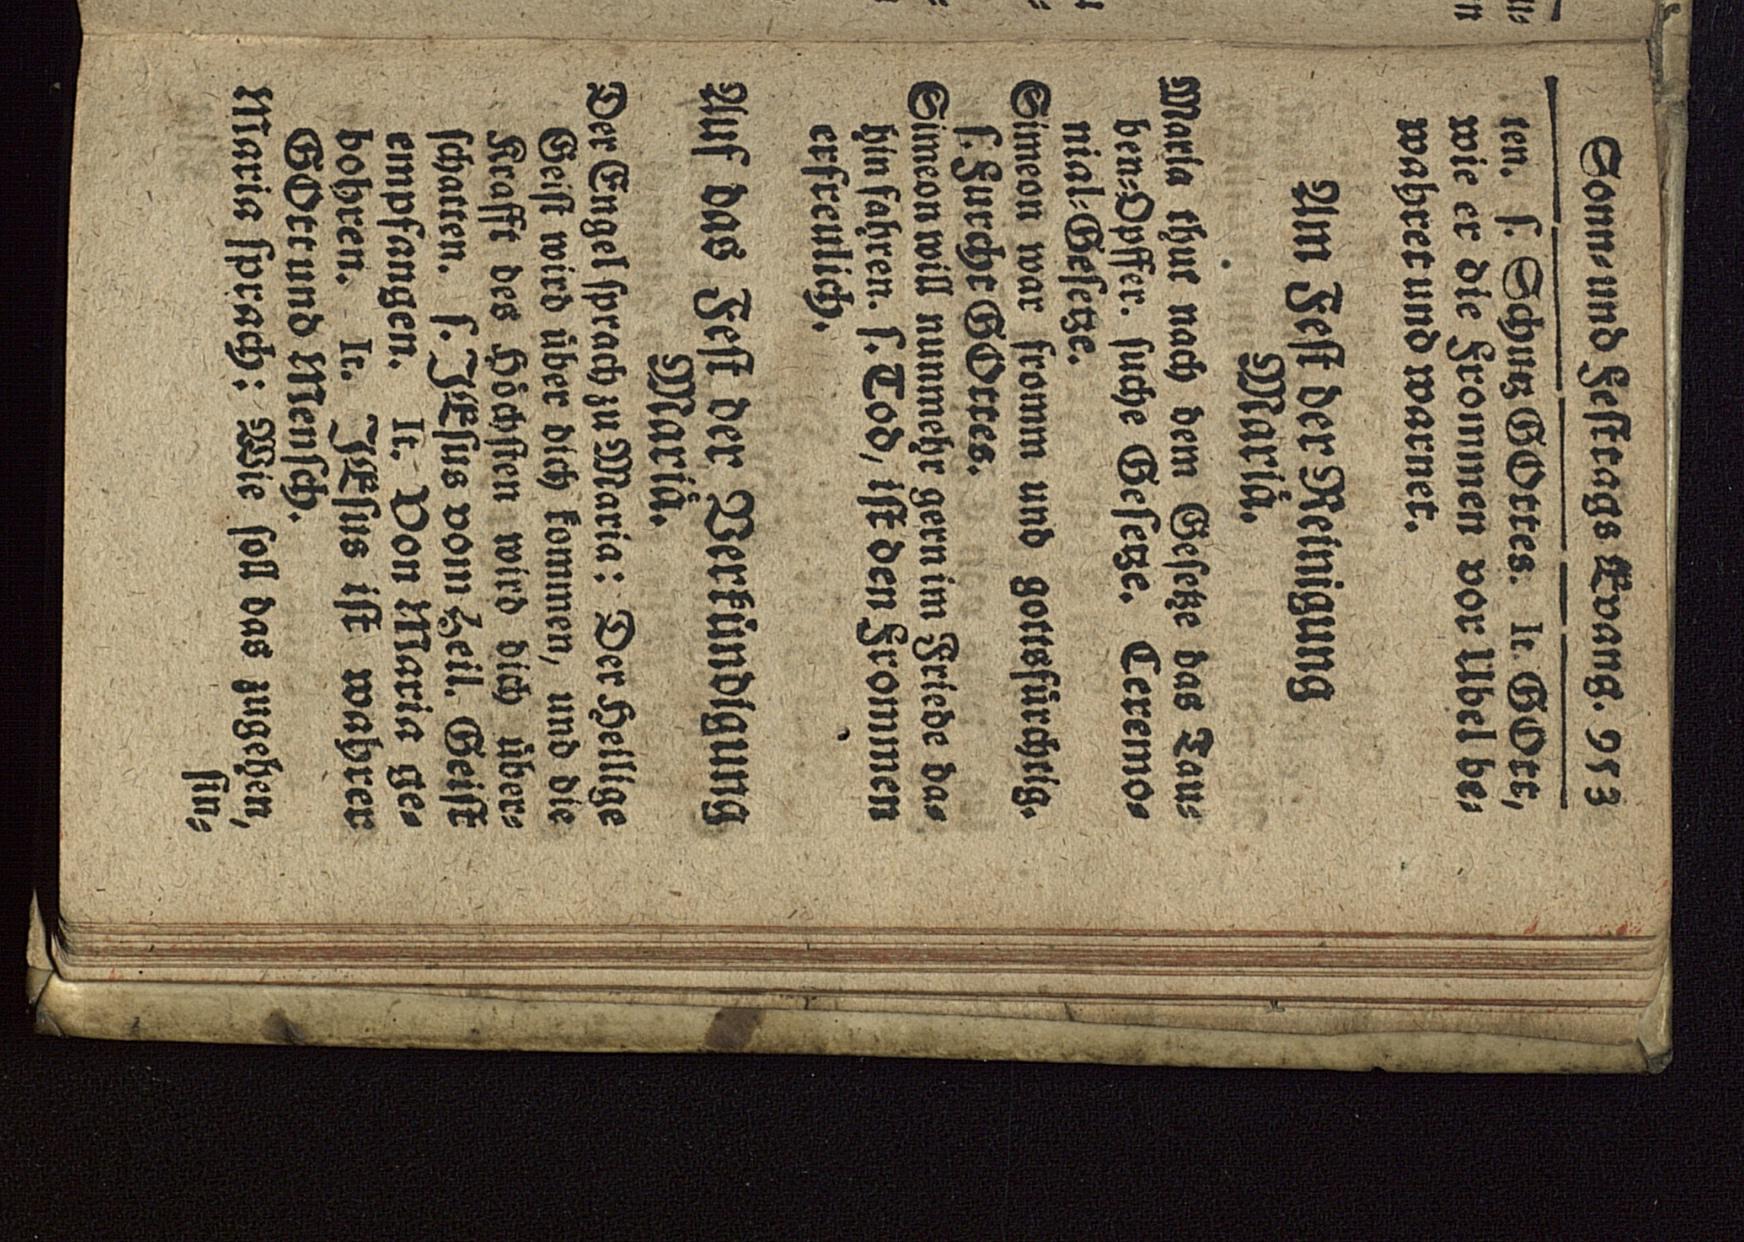 Sonn- und Festtags Evang. 953
ten. s. Schutz GOttes. It. GOtt,
wie er die Frommen vor Ubel be-
wahret und warnet.
Am Fest der Reinigung
Mariå.
Maria thut nach dem Gesetze das Tau-
ben-Opffer. suche Gesetze. Ceremo-
nial-Gesetze.
Simeon war fromm und gottsfürchtig.
s. Furcht GOttes.
Simeon will nunmehr gern im Friede da-
hin fahren. s. Tod, ist den Frommen
erfreulich.
Auf das Fest der Verkündigung
Mariå.
Der Engel sprach zu Maria: Der Heilige
Geist wird über dich kommen, und die
Krafft des Höchsten wird dich über-
schatten. s. JEsus vom Heil. Geist
empfangen. It. Von Maria ge-
bohren. It. JEsus ist wahrer
GOtt und Mensch.
Maria sprach: Wie soll das zugehen,
sin-